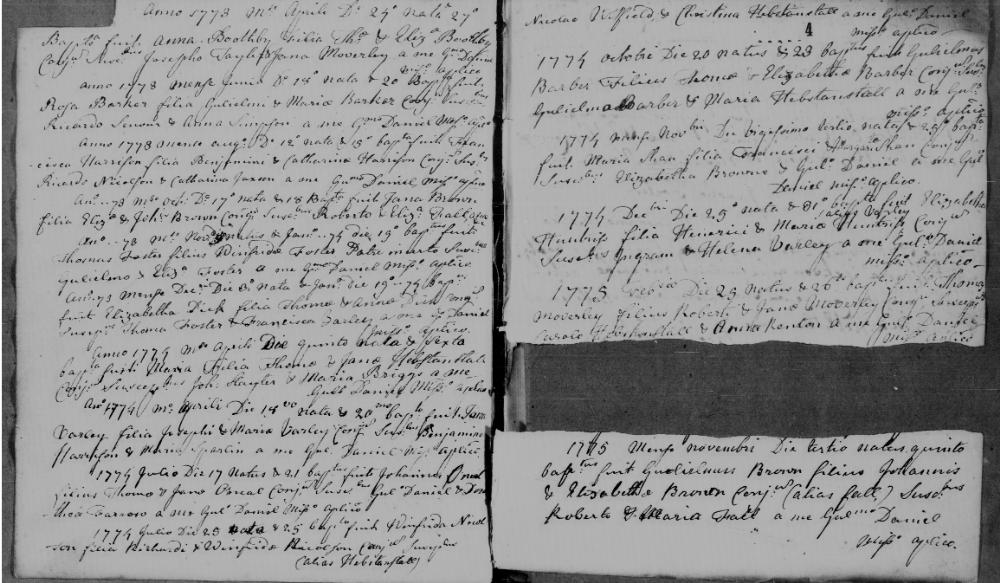 Anno 1773 Ms Aprili De 24o nata 27o
Bapta fuit Anna Boothby Filia Thoe & Elizae Boothby
Conj. Suscbus Josepho Tayler & Jana Moverley a me Gmo Daniel
Misso aplico
anno 1773 mense Junio De 18o nata & 20o Bapta fuit
Rosa Barker filia Gulielmi & Mariæ Barker Conj.
Ricardo Senour & Anna Simpson a me Gmo Daniel Misso aplico
Anno 1773 mense aug. De 12o nata & 15o bapta fuit Fran
cisca Harrison filia Benjamini & Catharina Harrison Conj.
Ricardo Nicolson & Catharina a me Gmo Daniel Misso aplico
Ano 73 Ms Octi De 17o nata & 18 Bapta fuit Jana Brown
Filia Elizae & Johis Brown Conj. Suscbus Roberto & Eliza
Ano 73 Ms natus & Janri 74 die 19o baptus fuit
Thomas Foster filius Winifrida Foster Patre
Gulielmo & Eliza Foster a me Gmo Daniel Misso aplico
Ano 73 Mense Decri Die 8o nata & Janri die 19o 74 Bapta
fuit Elizabetha Dick filia Thomæ & Anna Dick
Thoma Foster & Francisca Varley a me Daniel
Misso aplico
Anno 1774 Mse Aprili Die quinto nata & Sexto
bapta fuit Maria Filia Thomæ & Janæ Hebstanstall
Conj. Joh. & Maria Briggs a me
Gulo Daniel Misso aplico
Ano 1774 Ms Aprili Die 18vo nata & 20mo bapta fuit
Varley filia Josephi & Maria Varley Conj. Suscbus Benjamino
Harrison & Maria a me Gul. Daniel Misso aplico
1774 Julio Die 17 Natus & 21 baptus fuit Johannes Oneal
filius Thomæ & Janæ Oneal Conj. Suscbus Gul Daniel &
a me Gulo Daniel Misso Aplico
1774 Julio Die 23 nata & 25 bapta fuit Winifrida Nicol
son filia Richardi & Winifridæ Nicolson Conj.
(alias Hebstanstall)
Nicolao & Christina Hebstanstall a me Gulo Daniel
Misso aplico
4
1774 octobri Die 20 natus & 23 baptus fuit Gulielmus
Barber Filius Thomæ & Elizabethæ Barber Conj. Suscbus
Gulielmo Barber & Maria Hebstanstall a me Gulo
Misso aplico
1774 Mense Novbri Die vigesimo tertio nata & 25o bapta
fuit Maria filia Francisci & Conj.
Suscbus Elizabetha Browne & Gulo Daniel a me Gulo
Daniel misso aplico
1774 Decbri Die 29o nata & 31o bapta fuit Elizabetha
alias Varley
filia Henerici & Maria Conj.
Suscbus Ingram & Helena Varley a me Gulo Daniel
misso aplico
1775 Die 25 natus & 26o baptus fuit Thomas
Moverley Filius Roberti & Janæ Moverley Conj.
Carolo & Anna Kenton a me Gulo Daniel
Misso aplico
1775 Mense novembri Die tertio natus quinto
baptus fuit Gulielmus Brown filius Johannis
& Elizabethæ Brown Conj. (alias Fall) Suscbus
Roberto & Maria Fall a me Gulmo Daniel
Misso aplico.